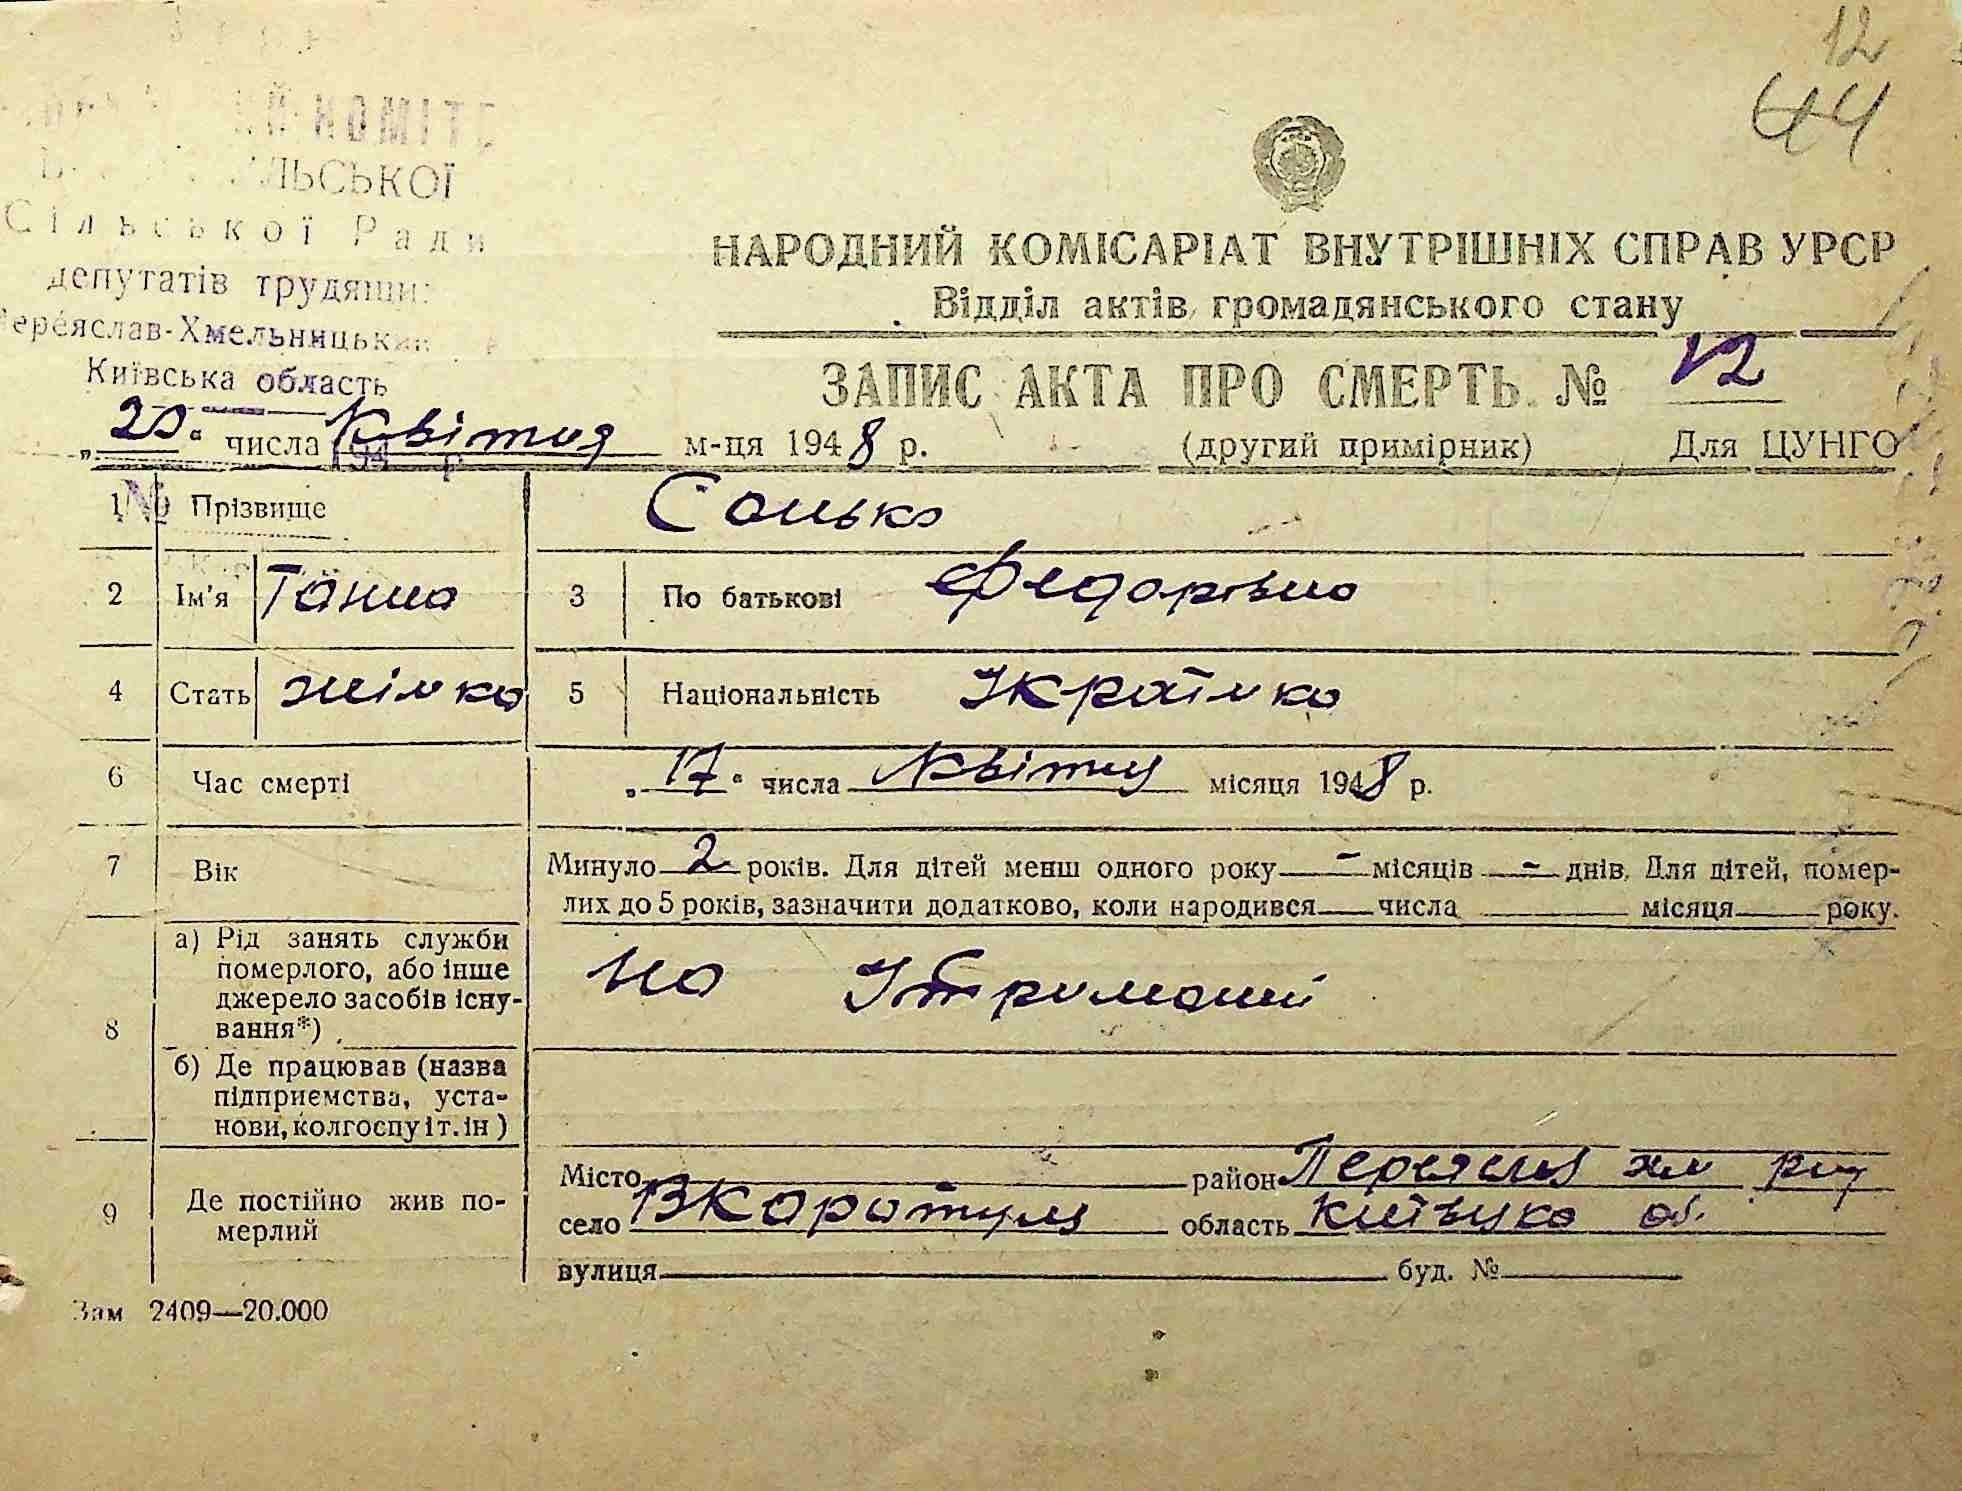 12
44
КОМІТЕ
ЛЬСЬКОЇ
Сільської Ради
депутатів трудящих
Переяслав-Хмельницький
Київська область
НАРОДНИЙ КОМІСАРІАТ ВНУТРІШНІХ СПРАВ УРСР
Відділ актів громадянського стану
ЗАПИС АКТА ПРО СМЕРТЬ № 12
„20" числа квітня м-ця 1948 р. (другий примірник) Для ЦУНГО
1 Прізвище Сонько
2 Ім'я Ганна 3 По батькові Федорівна
4 Стать жінка 5 Національність Українка
6 Час смерті „17" числа квітня місяця 1948 р.
7 Вік Минуло 2 років. Для дітей менш одного року - місяців - днів. Для дітей, помер-
лих до 5 років, зазначити додатково, коли народився числа місяця року.
8 а) Рід занять служби
померлого, або інше
джерело засобів існу-
вання*)
на Утриманні
б) Де працював (назва
підприємства, уста-
нови, колгоспу і т. ін)
9 Де постійно жив по-
мерлий
Місто район Переяслав хм рну
село ВКаратуля область Київська об.
вулиця буд. №
Зам 2409—20.000